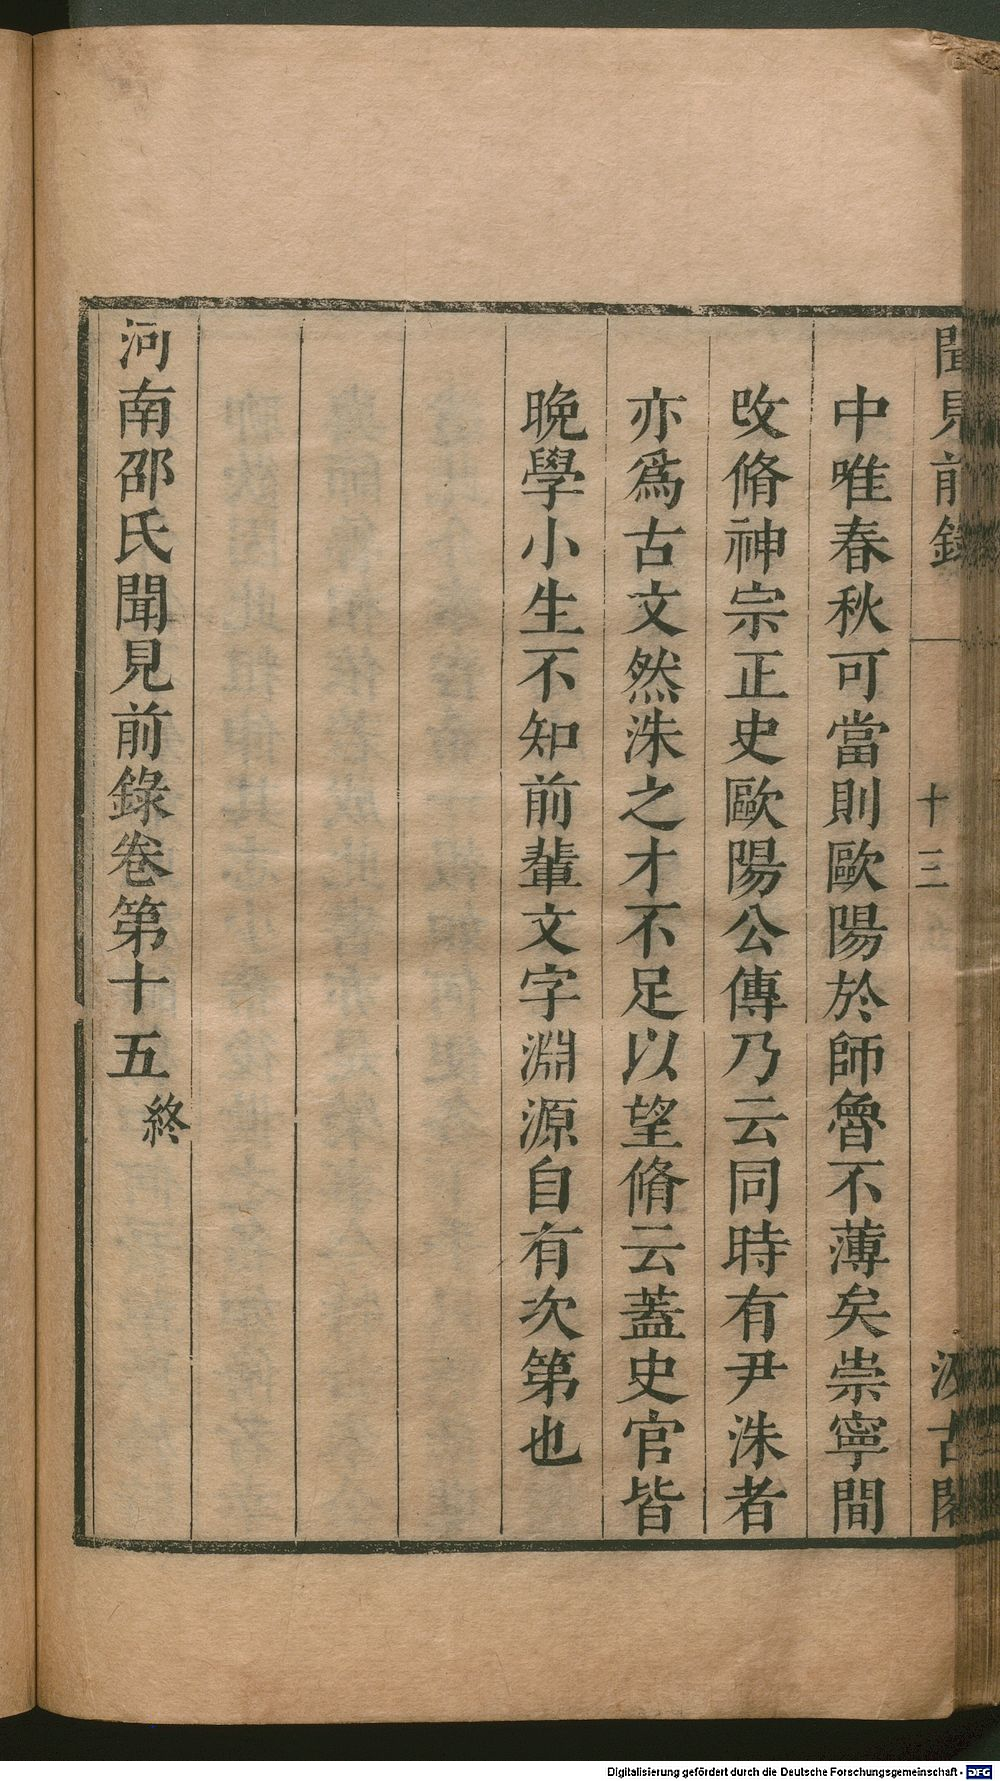 聞見前錄
十三
汲古閣
中唯春秋可當則歐陽於師魯不薄矣崇寧間
改脩神宗正史歐陽公傳乃云同時有尹洙者
亦爲古文然洙之才不足以望脩云蓋史官皆
晚學小生不知前輩文字淵源自有次第也
河南邵氏聞見前錄卷第十五終
Digitalisierung gefördert durch die Deutsche Forschungsgemeinschaft - DFG